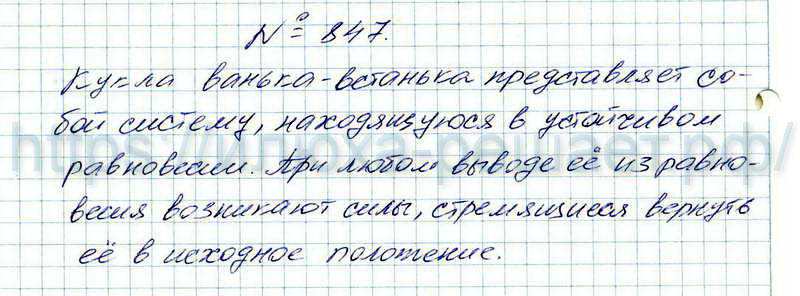 № 847.
Кукла ванька-встанька представляет со-
бой систему, находящуюся в устойчивом
равновесии. При любом выводе её из равно-
весия возникают силы, стремящиеся вернуть
её в исходное положение.